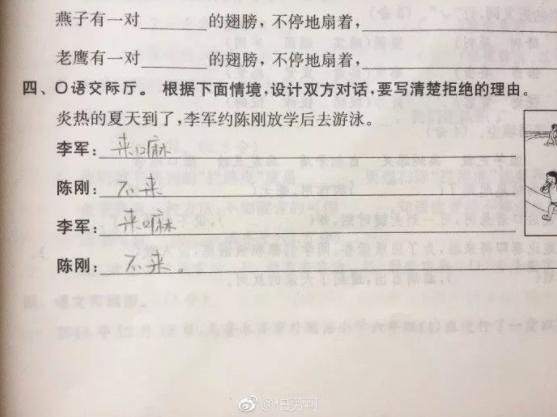 燕子有一对______的翅膀，不停地扇着，
老鹰有一对______的翅膀，不停地扇着，
四、口语交际厅。根据下面情境，设计双方对话，要写清楚拒绝的理由。
炎热的夏天到了，李军约陈刚放学后去游泳。
李军：来口麻
陈刚：不来
李军：来口麻
陈刚：不来。